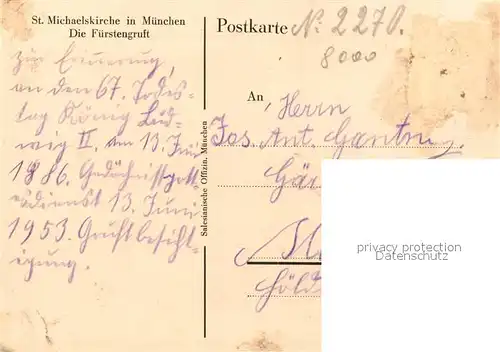 St. Michaelskirche in München
Die Fürstengruft
zur Erinerung,
an den 67. Todes-
tag König Lud-
wig II. am 13. Juni
1886. Gedächnissgott-
esdienst 13. Juni
1953. Gruft besicht-
igung.
Salesianische Offizin, München
Postkarte
No. 2270.
8000
An Herrn
Jos. Ant.
privacy protection
Datenschutz